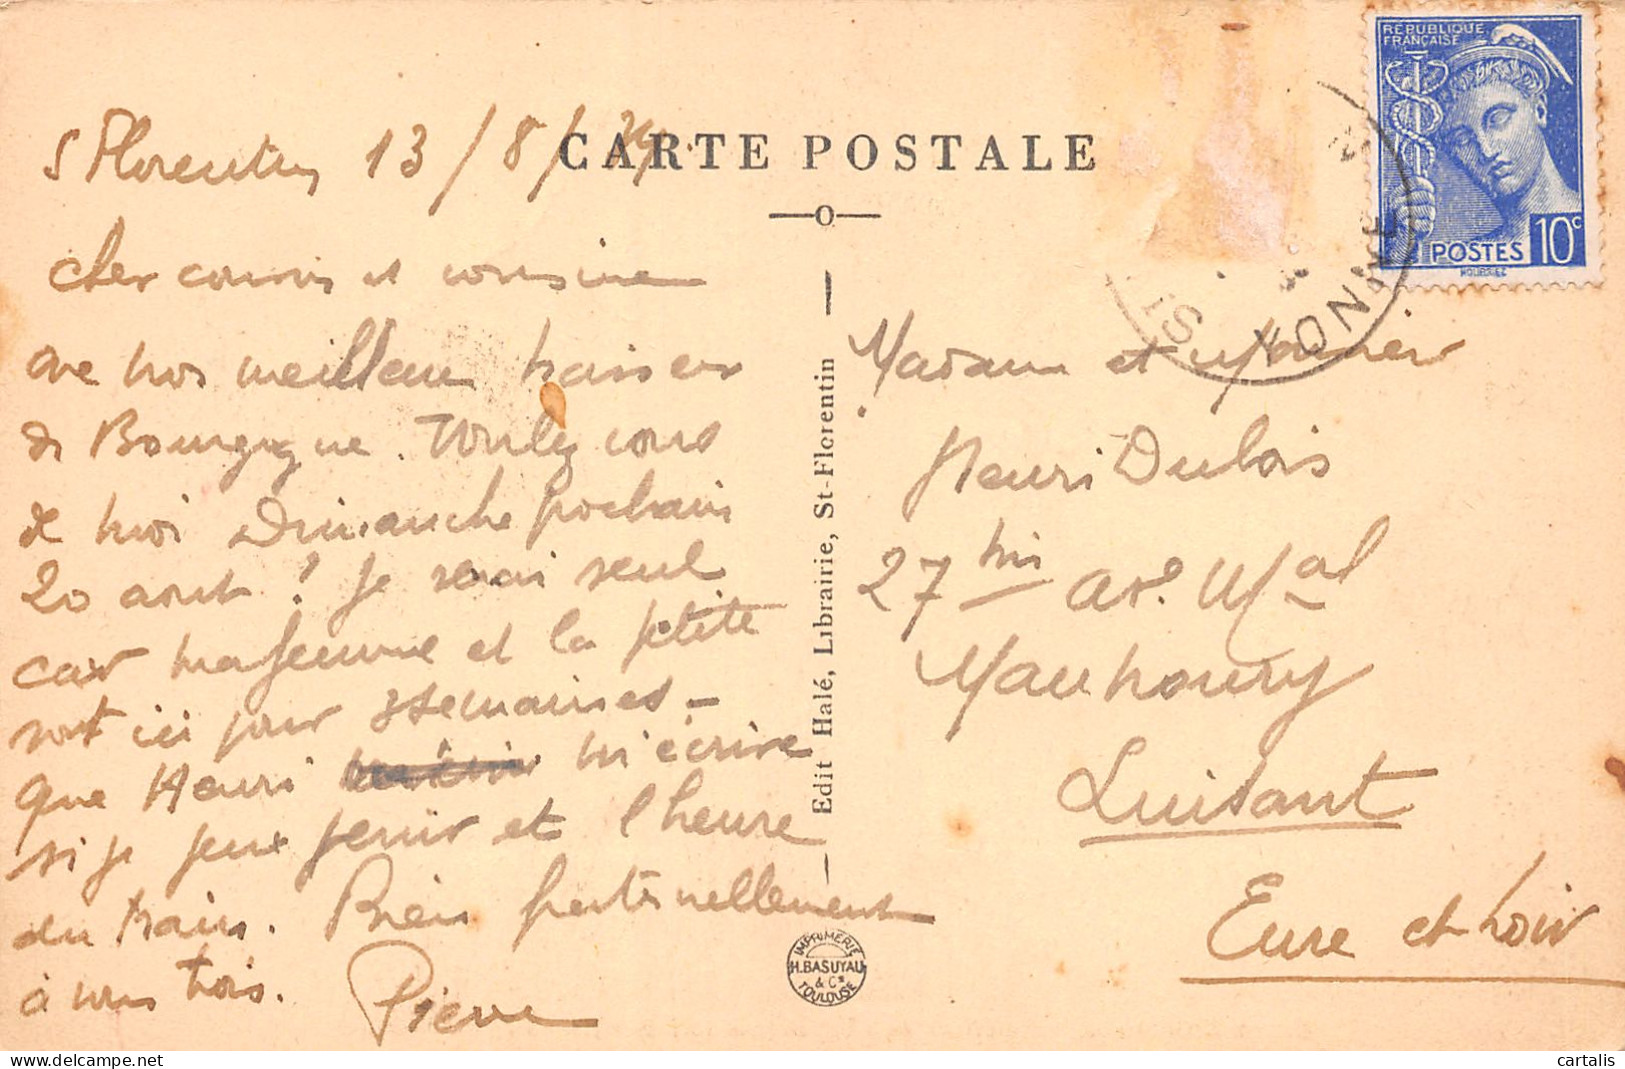 S Florentin 13/8/
CARTE POSTALE
Cher cousin et cousine
ave nos meilleurs baisers
de Bourgogne. Voulez vous
de moi Dimanche prochain
20 aout ? Je serai seul
car ma femme et la petite
sont ici pour 3 semaines -
que Henri m'écrire
si je peux venir et l heure
du train. Bien fraternellement
à vous trois.
Pierre
Edit Halé, Librairie, St-Florentin
IMPRIMERIE
H. BASUYAU
& Cie
TOULOUSE
REPUBLIQUE
FRANÇAISE
POSTES 10c
YONNE
ST
Madame et Monsieur
Henri Dubois
27 bis ave. Mal
Maunoury
Luisant
Eure et Loir
cartalis